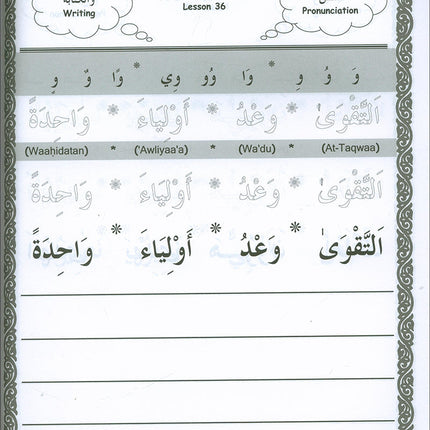 والكتابة
Writing
Lesson 36
Pronunciation
وَ وُ وِ * وَا وُو وِي * وًا وٌ وٍ
اَلتَّقْوَىٰ * وَعْدُ * أَوْلِيَاءَ * وَاحِدَةً
(Waahidatan) * ('Awliyaa'a) * (Wa'du) * (At-Taqwaa)
اَلتَّقْوَىٰ * وَعْدُ * أَوْلِيَاءَ * وَاحِدَةً
اَلتَّقْوَىٰ * وَعْدُ * أَوْلِيَاءَ * وَاحِدَةً